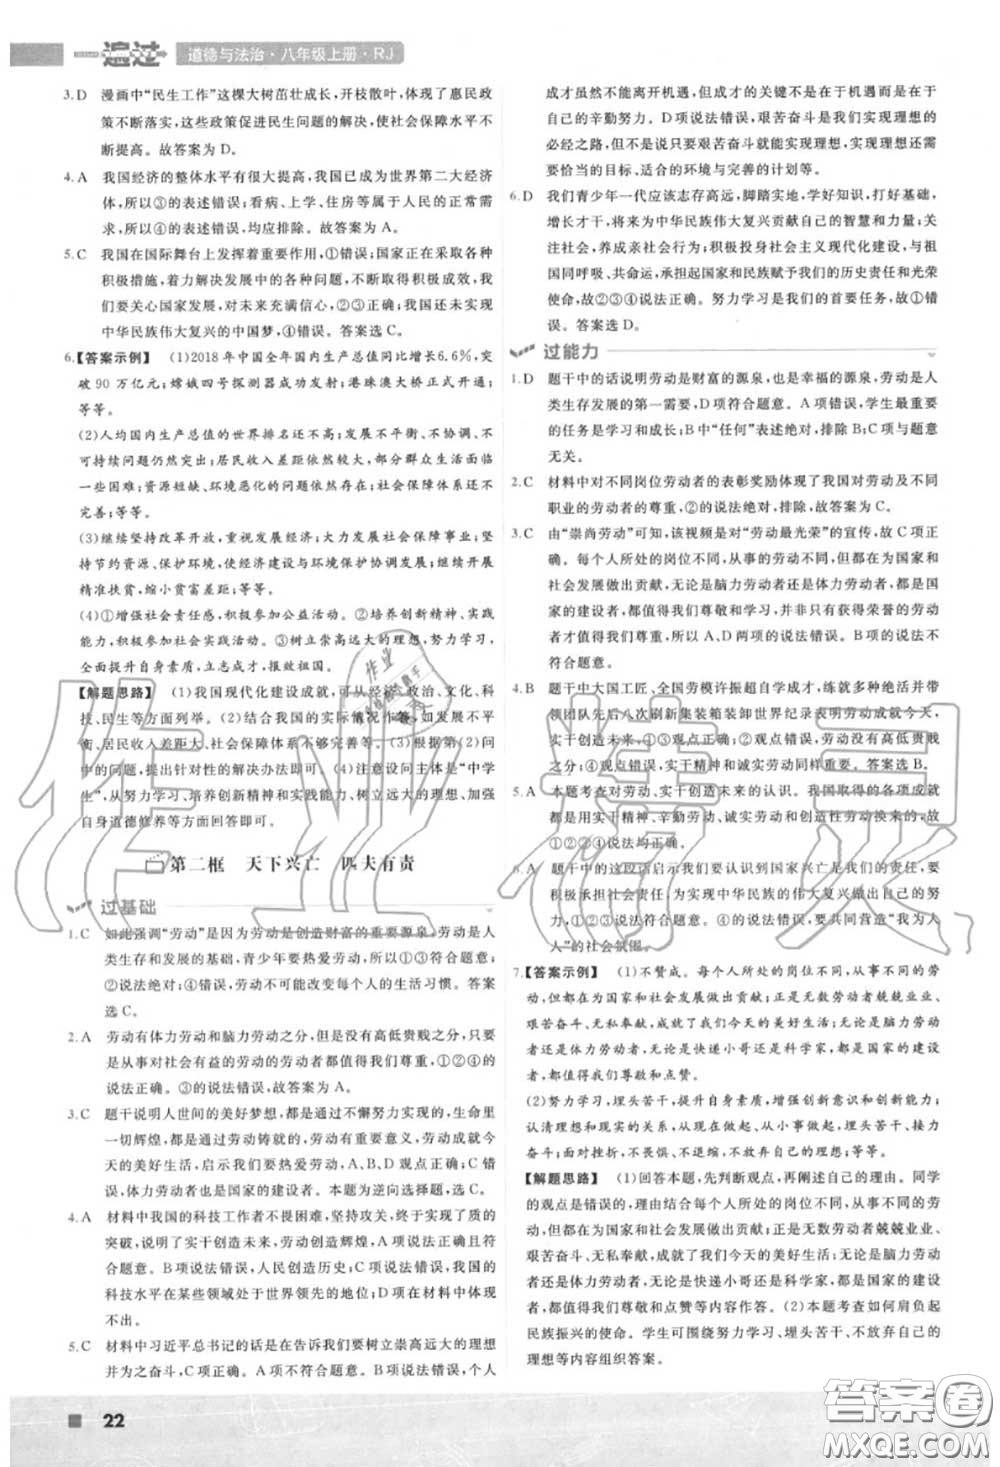 一遍过 道德与法治·八年级上册·RJ
3. D 漫画中“民生工作”这棵大树茁壮成长，开枝散叶，体现了惠民政
策不断落实，这些政策促进民生问题的解决，使社会保障水平不
断提高。故答案为 D。
4. A 我国经济的整体水平有很大提高，我国已成为世界第二大经济
体，所以③的表述错误；看病、上学、住房等属于人民的正常需
求，所以④的表述错误，均应排除。故答案为 A。
5. C 我国在国际舞台上发挥着重要作用，①错误；国家正在采取各种
积极措施，着力解决发展中的各种问题，不断取得积极成效，我
们要关心国家发展，对未来充满信心，②③正确；我国还未实现
中华民族伟大复兴的中国梦，④错误。答案选 C。
6.【答案示例】 (1)2018 年中国全年国内生产总值同比增长 6.6%，突
破 90 万亿元；嫦娥四号探测器成功发射；港珠澳大桥正式开通；
等等。
(2)人均国内生产总值的世界排名还不高；发展不平衡、不协调、不
可持续问题仍然突出；居民收入差距依然较大，部分群众生活还
很艰难；资源短缺、环境恶化的问题依然存在；社会保障体系还不
完善；等等。
(3)继续坚持改革开放，重视发展经济；大力发展社会保障事业；坚持
节约资源、保护环境，使经济建设与环境保护协调发展；继续开展
精准扶贫，缩小贫富差距；等等。
(4)①增强社会责任感，积极参加公益活动。②培养创新精神、实践
能力，积极参加社会实践。③树立崇高远大的理想，努力学习，
全面提高自身素质，立志成才，报效国家。
【解题思路】 (1)我国现代化建设成就，可从经济、政治、文化、科
技、民生等方面列举。(2)结合我国的实际情况作答，如发展不平
衡、居民收入差距大、社会保障体系不够完善等。(3)根据第(2)问
中的问题，提出针对性的解决办法即可。(4)注意设问主体是“中学
生”，从努力学习、培养创新精神和实践能力、树立远大理想、加强
自身道德修养等方面回答即可。
第二框 天下兴亡 匹夫有责
过基础
1. C 如此强调“劳动”是因为劳动是创造财富的重要源泉，劳动是人
类生存和发展的基础，青少年要热爱劳动，所以①③④说法正确；
②说法绝对，没有体现每个人的生活习惯。答案
选 C。
2. A 劳动有体力劳动和脑力劳动之分，但没有高低贵贱之分，只要
是从事对社会有益的劳动的劳动者都值得我们尊重，①②④的
说法正确。③的说法错误，故答案为 A。
3. C 题干说明人世间的美好梦想，都是通过不懈努力实现的，生命里
一切辉煌，都是通过劳动铸就的，劳动有重要意义，劳动成就今天
的美好生活，所以告诉我们要热爱劳动，A、B、D 正确；C 错
误，脑力劳动者也是国家的建设者。本题为逆向选择题，故选 C。
4. A 材料中我国的科技工作者不畏困难，坚持攻关，终于实现了质的
突破，说明了实干创造未来，劳动创造辉煌，A 项说法正确且符
合题意。B 项说法错误，人民创造历史；C 项说法错误，我国的
科技水平在某些领域处于世界领先的地位；D 项在材料中体现
不出。
5. C 材料中习近平总书记的话是在告诉我们要树立崇高远大的理想
并为之奋斗，C 项正确；A 项夸大了理想的作用；B 项说法错误，个人
成才虽然不能离开机遇，但成才的关键不是为了抓住机遇，而是自
己的辛勤努力。D 项说法错误，艰苦奋斗是我们实现理想的
必经之路，但不是说只要艰苦奋斗就能实现理想，实现理想还需
要恰当的目标、适合的环境与完善的计划等。
6. D 我们青少年一代应该志存高远，脚踏实地，学好知识，打好基础，
增长才干，将来为中华民族伟大复兴贡献自己的智慧和力量；关
注社会，养成亲社会行为；积极投身社会主义现代化建设，与祖
国同呼吸、共命运，承担起国家和民族赋予我们的历史责任和光荣
使命，故②③④说法正确。努力学习是我们的首要任务，①错
误。答案选 D。
过能力
1. D 题干中的话说明劳动是财富的源泉，也是幸福的源泉，劳动是人
类生存发展的第一需要，D 项符合题意。A 项错误，学生最重要
的任务是学习和成长；B 中“任何”表述绝对，排除 B；C 项与题意
无关。
2. C 材料中对不同岗位劳动者的表彰奖励体现了我国劳动及不同
职业的劳动者的认可和尊重，②的说法错误，故选 C。
3. C 由“崇尚劳动”可知，该视频是对“劳动最光荣”的宣传，故 C 项正
确。每个人所处的岗位不同，从事的劳动不同，但都在为国家和
社会发展做出贡献，无论是脑力劳动者还是体力劳动者，都是国
家的建设者，都值得我们尊重和赞赏，并非只有获得荣誉的劳动
者才值得我们尊重，所以 A、D 两项的说法错误。B 项的说法不
符合题意。
4. B 题干中大国工匠、全国劳模许振超自学成才，练就多种绝活并带
领团队先后八次刷新集装箱装卸世界纪录表明劳动成就今天，
实干创造未来，①③观点正确；②观点错误，劳动没有高低贵贱
之分；④观点错误，实干精神和诚实劳动同样重要。答案选 B。
5. A 本题考查对劳动、实干创造未来的认识。我国取得的各项成就
都是干出来的，辛勤劳动、诚实劳动和创造性劳动换来的，故
①②③④说法均正确。
6. A 题干中的话启示我们要认识到国家兴亡是我们的责任，要
积极承担社会责任，为实现中华民族的伟大复兴做出自己的
贡献，①②③说法正确且符合题意。④说法错误，要共同营造“我为人
人”的社会氛围。
7.【答案示例】 (1)不赞成。每个人所处的岗位不同，从事不同的劳
动，但都在为国家和社会发展做贡献；正是无数劳动者兢兢业业、
艰苦奋斗、无私奉献，成就了我们今天的美好生活；无论是体力劳
动者还是脑力劳动者，无论是快递小哥还是科学家，都是国家的建设
者，都值得我们尊敬和点赞。
(2)努力学习，埋头苦干，提升自身素质，增强创新意识和创新能力；
认清理想和现实的关系，从大处着眼，从小事做起，埋头苦干、真抓
实干，不畏惧、不退缩，不放弃自己的理想；等等。
【解题思路】 (1)回答本题，先判断观点，再阐述自己的理由。同学
的观点是错误的，理由结合每个人所处的岗位不同，从事不同的劳
动，但都在为国家和社会发展做出贡献；正是无数劳动者兢兢业业、
艰苦奋斗、无私奉献，成就了我们今天的美好生活；无论是体力劳
动者还是脑力劳动者，无论是快递小哥还是科学家，都是国家的建设
者，都值得尊重和点赞等内容作答。(2)本题考查如何肩负起
民族振兴的使命。学生可围绕努力学习、埋头苦干、不放弃自己的
理想等内容组织答案。
22
作业精灵
答案圈
MXQE.COM